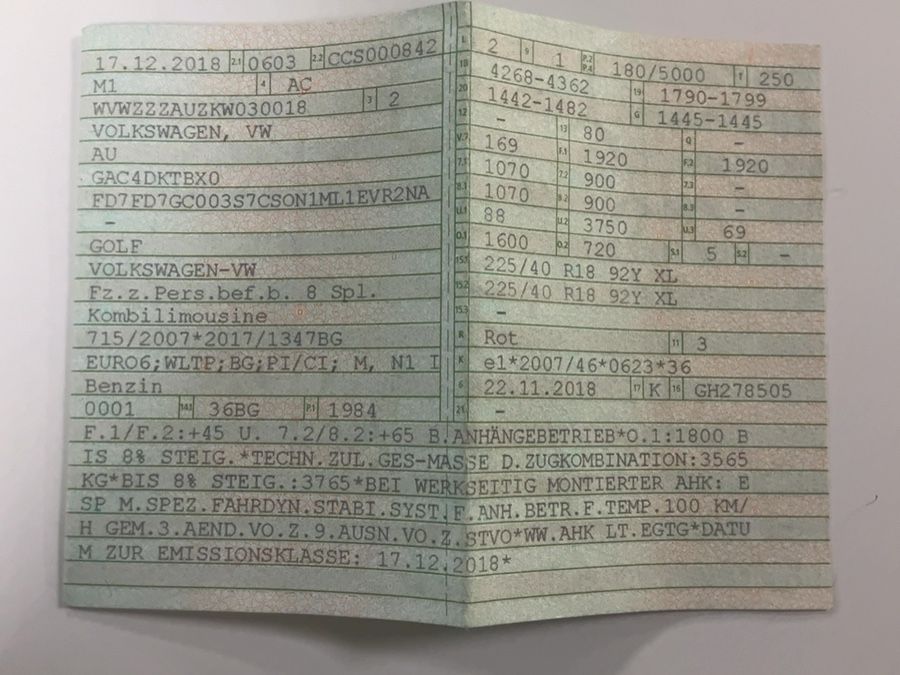 17.12.2018 2.1 0603 2.2 CCS000842
M1 4 AC
WVWZZZAUZKW030018 3 2
VOLKSWAGEN, VW
AU
GAC4DKTBX0
FD7FD7GC003S7CSON1ML1EVR2NA
-
GOLF
VOLKSWAGEN-VW
Fz.z.Pers.bef.b. 8 Spl.
Kombilimousine
715/2007*2017/1347BG
EURO6;WLTP;BG;PI/CI; M, N1 I
Benzin
0001 14.1 36BG P.1 1984
L 2 9 1 P.2 P.4 180/5000 T 250
18 4268-4362 19 1790-1799
20 1442-1482 G 1445-1445
12 - 13 80 Q -
V.7 169 F.1 1920 F.2 1920
7.1 1070 7.2 900 7.3 -
8.1 1070 8.2 900 8.3 -
U.1 88 U.2 3750 U.3 69
O.1 1600 O.2 720 S.1 5 S.2 -
15.1 225/40 R18 92Y XL
15.2 225/40 R18 92Y XL
15.3 -
R Rot 11 3
K e1*2007/46*0623*36
6 22.11.2018 17 K 16 GH278505
21 -
F.1/F.2:+45 U. 7.2/8.2:+65 B.ANHÄNGEBETRIEB*O.1:1800 B
IS 8% STEIG.*TECHN.ZUL.GES-MASSE D.ZUGKOMBINATION:3565
KG*BIS 8% STEIG.:3765*BEI WERKSEITIG MONTIERTER AHK: E
SP M.SPEZ.FAHRDYN.STABI.SYST.F.ANH.BETR.F.TEMP.100 KM/
H GEM.3.AEND.VO.Z.9.AUSN.VO.Z.STVO*WW.AHK LT.EGTG*DATU
M ZUR EMISSIONSKLASSE: 17.12.2018*